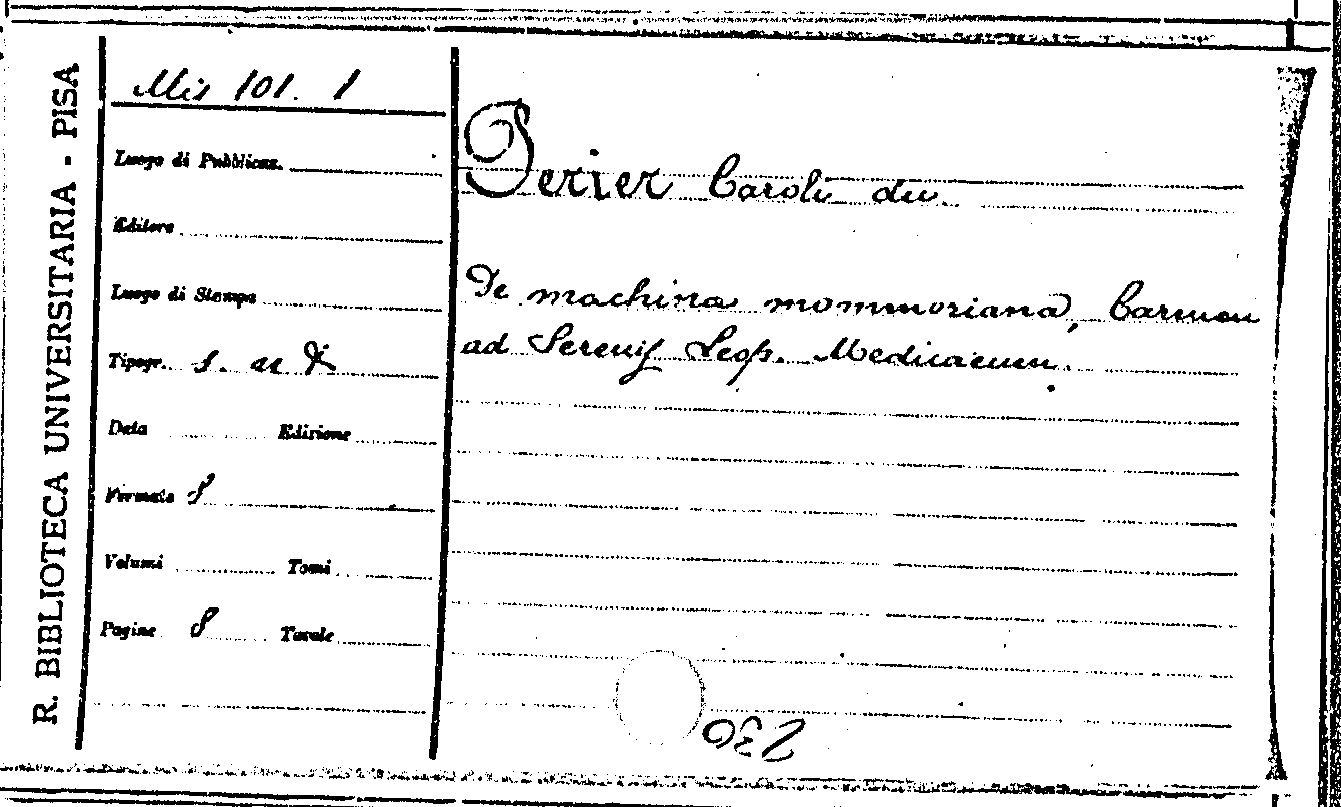 R. BIBLIOTECA UNIVERSITARIA - PISA
Mis 101. 1
Luogo di Pubblicaz.
Editore
Luogo di Stampa
Tipogr. s. a
Data Edizione
Formato 8
Volumi Tomi
Pagine 8 Tavole
Perier Caroli du
De machina mommoriana, Carmen
ad Sereniſ Leop. Mediceum.